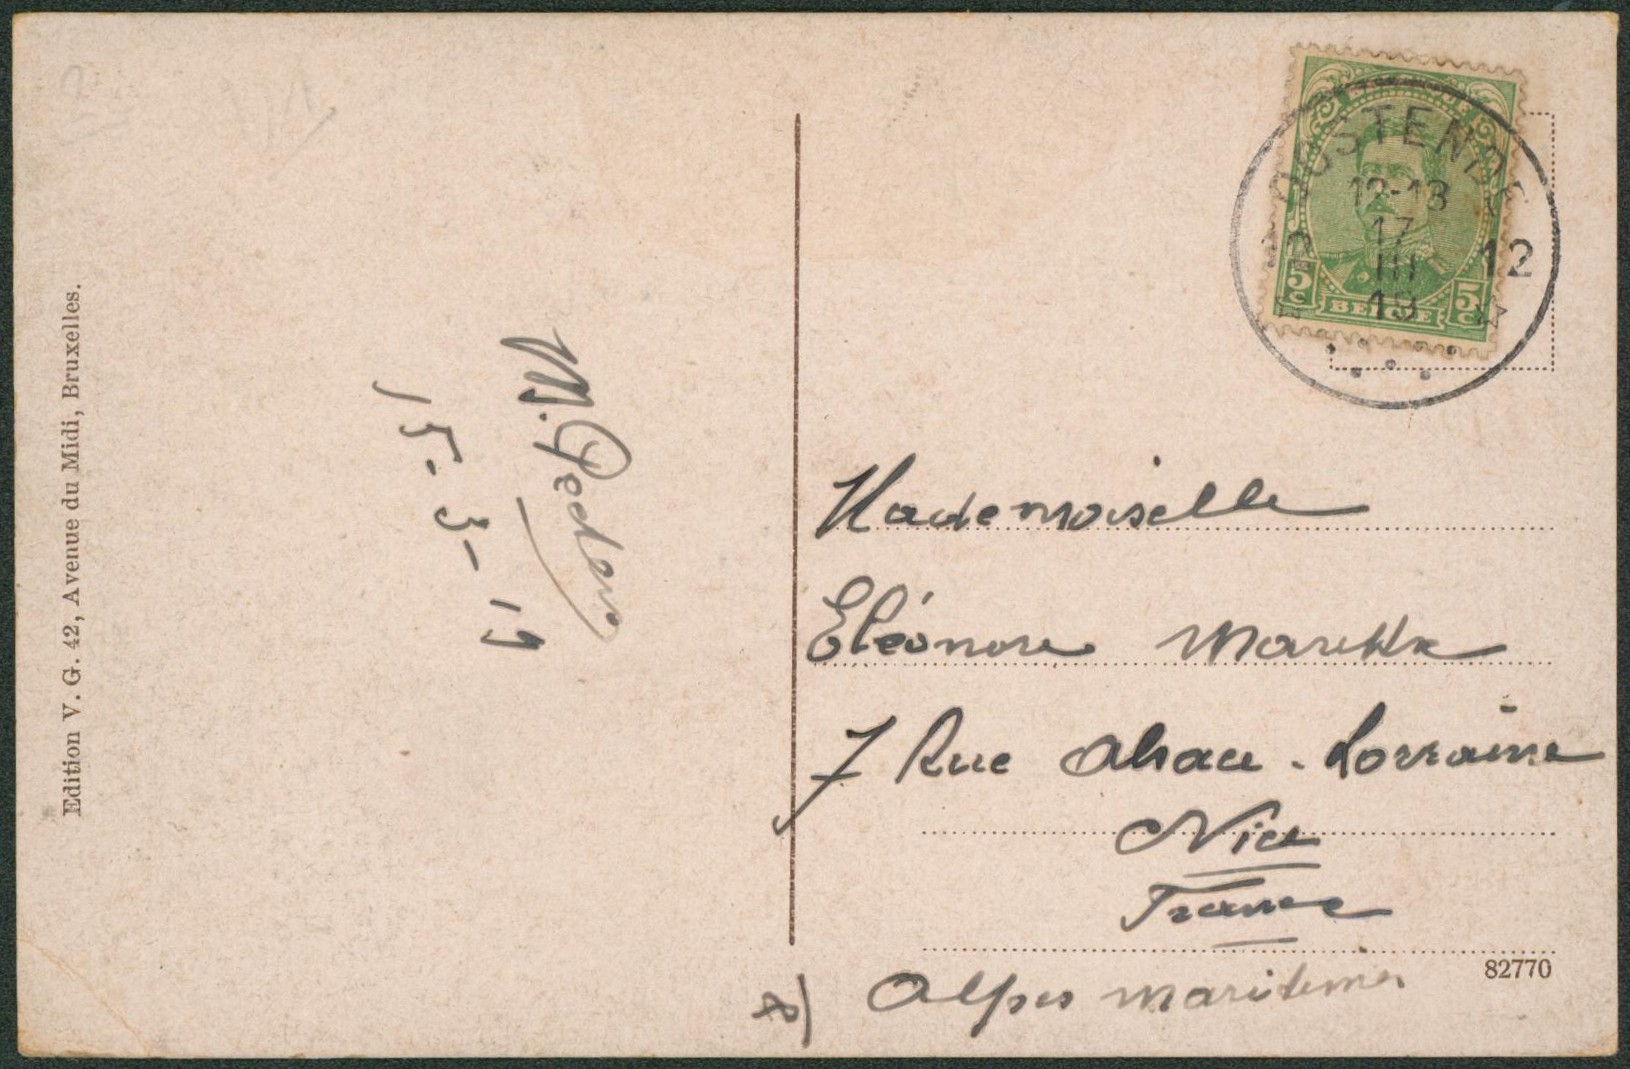 Edition V. G. 42, Avenue du Midi, Bruxelles.
15-3-19
OOSTENDE
12-13
17
III
19
12 12
5c BELGIE 5c
Mademoiselle
Eléonore
7 Rue Alsace-Lorraine
Nice
France
Alpes maritimes
82770